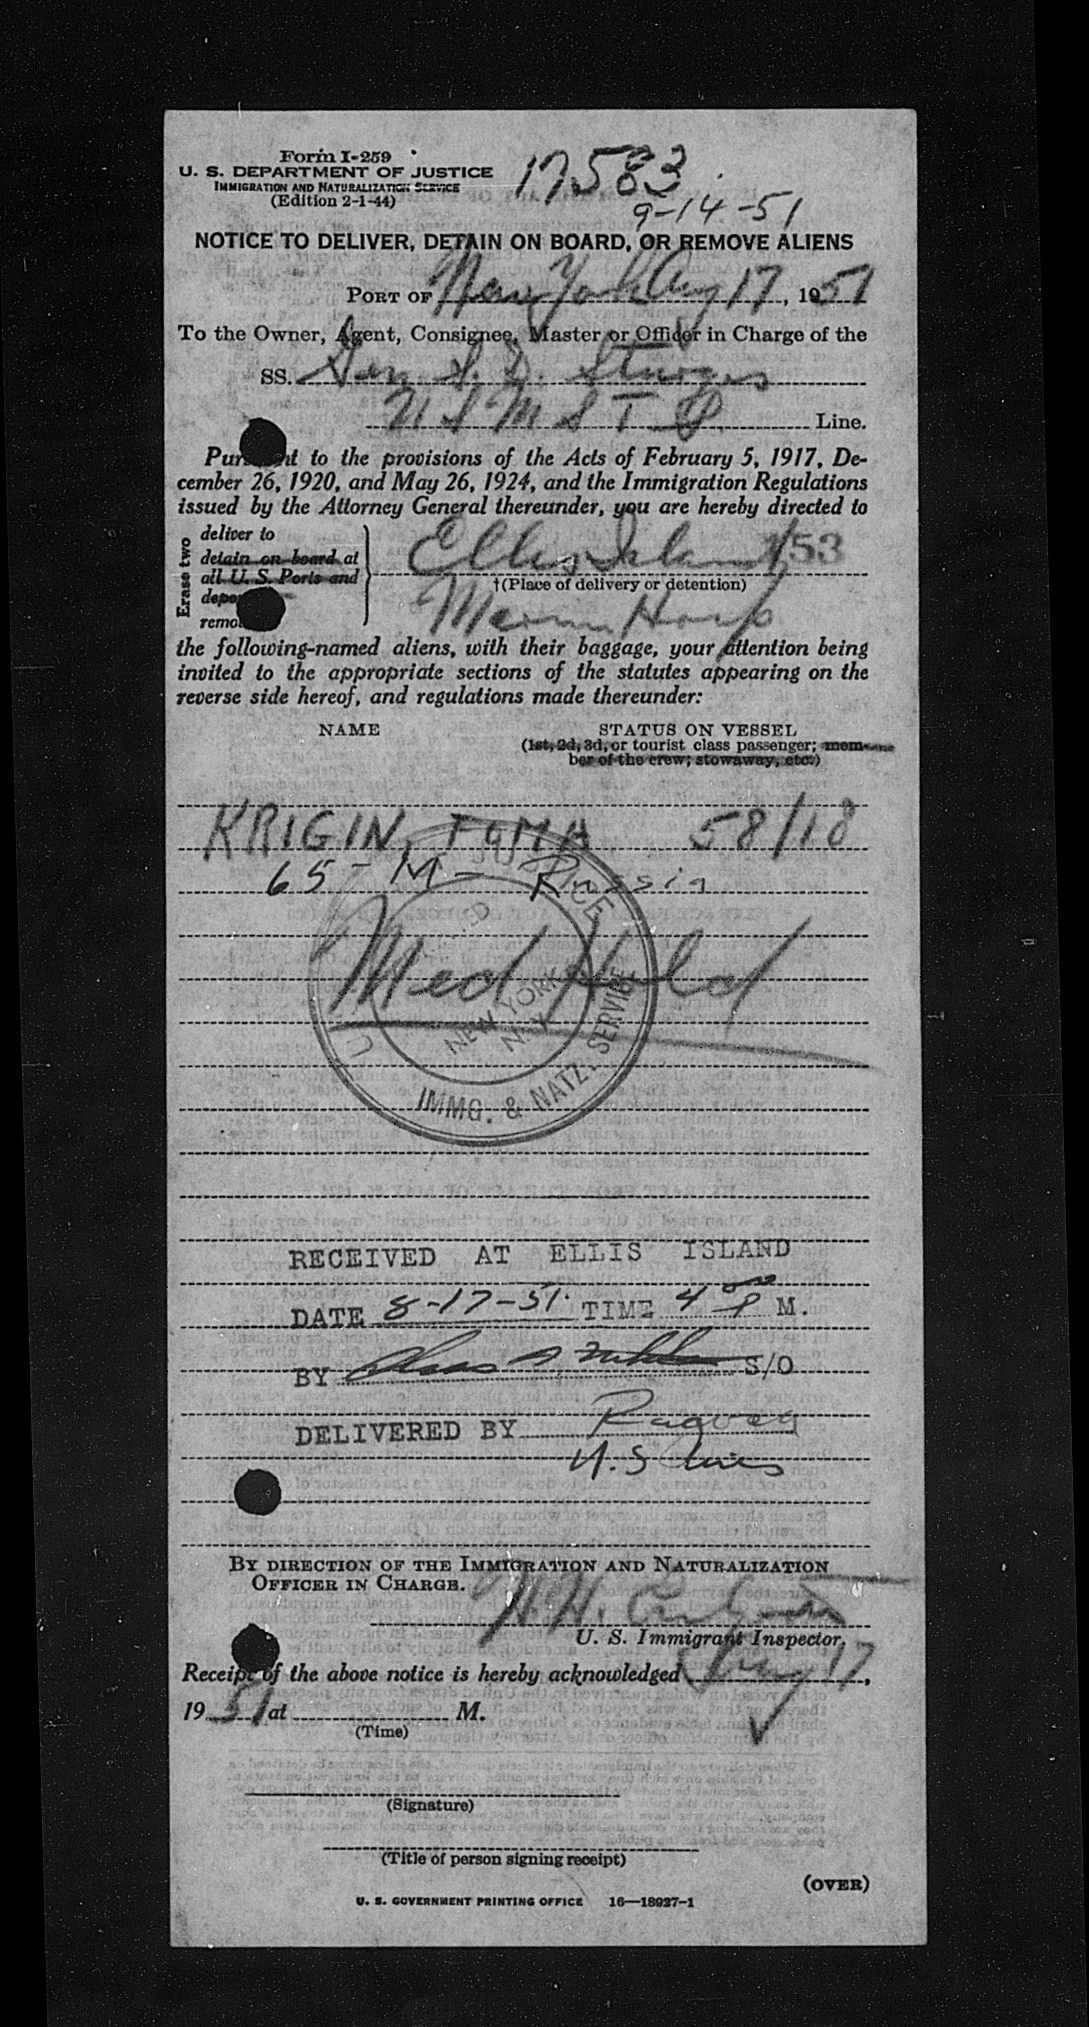 Form I-259
U. S. DEPARTMENT OF JUSTICE
IMMIGRATION AND NATURALIZATION SERVICE
(Edition 2-1-44)
17583
9-14-51
NOTICE TO DELIVER, DETAIN ON BOARD, OR REMOVE ALIENS
PORT OF New York Aug 17, 1951
To the Owner, Agent, Consignee, Master or Officer in Charge of the
SS. Gen S. D. Sturgis
U S M S T S Line.
Pursuant to the provisions of the Acts of February 5, 1917, De-
cember 26, 1920, and May 26, 1924, and the Immigration Regulations
issued by the Attorney General thereunder, you are hereby directed to
Erase two
deliver to
detain on board at
all U. S. Ports and
remo
Ellis Island 53
†(Place of delivery or detention)
Marine Hosp
the following-named aliens, with their baggage, your attention being
invited to the appropriate sections of the statutes appearing on the
reverse side hereof, and regulations made thereunder:
NAME STATUS ON VESSEL
(1st, 2d, 3d, or tourist class passenger; mem-
ber of the crew; stowaway, etc.)
KRIGIN, FOMA 58/18
65 - M - Russia
Med Hold
NEW YORK
N.Y.
IMMG. & NATZ. SERVICE
RECEIVED AT ELLIS ISLAND
DATE 8-17-51 TIME 4 00 P M.
BY S/O
DELIVERED BY
U.S.
BY DIRECTION OF THE IMMIGRATION AND NATURALIZATION
OFFICER IN CHARGE.
H. H.
U. S. Immigrant Inspector.
Receipt of the above notice is hereby acknowledged Aug 17,
1951 at M.
(Time)
(Signature)
(Title of person signing receipt)
(OVER)
U. S. GOVERNMENT PRINTING OFFICE 16—18927-1